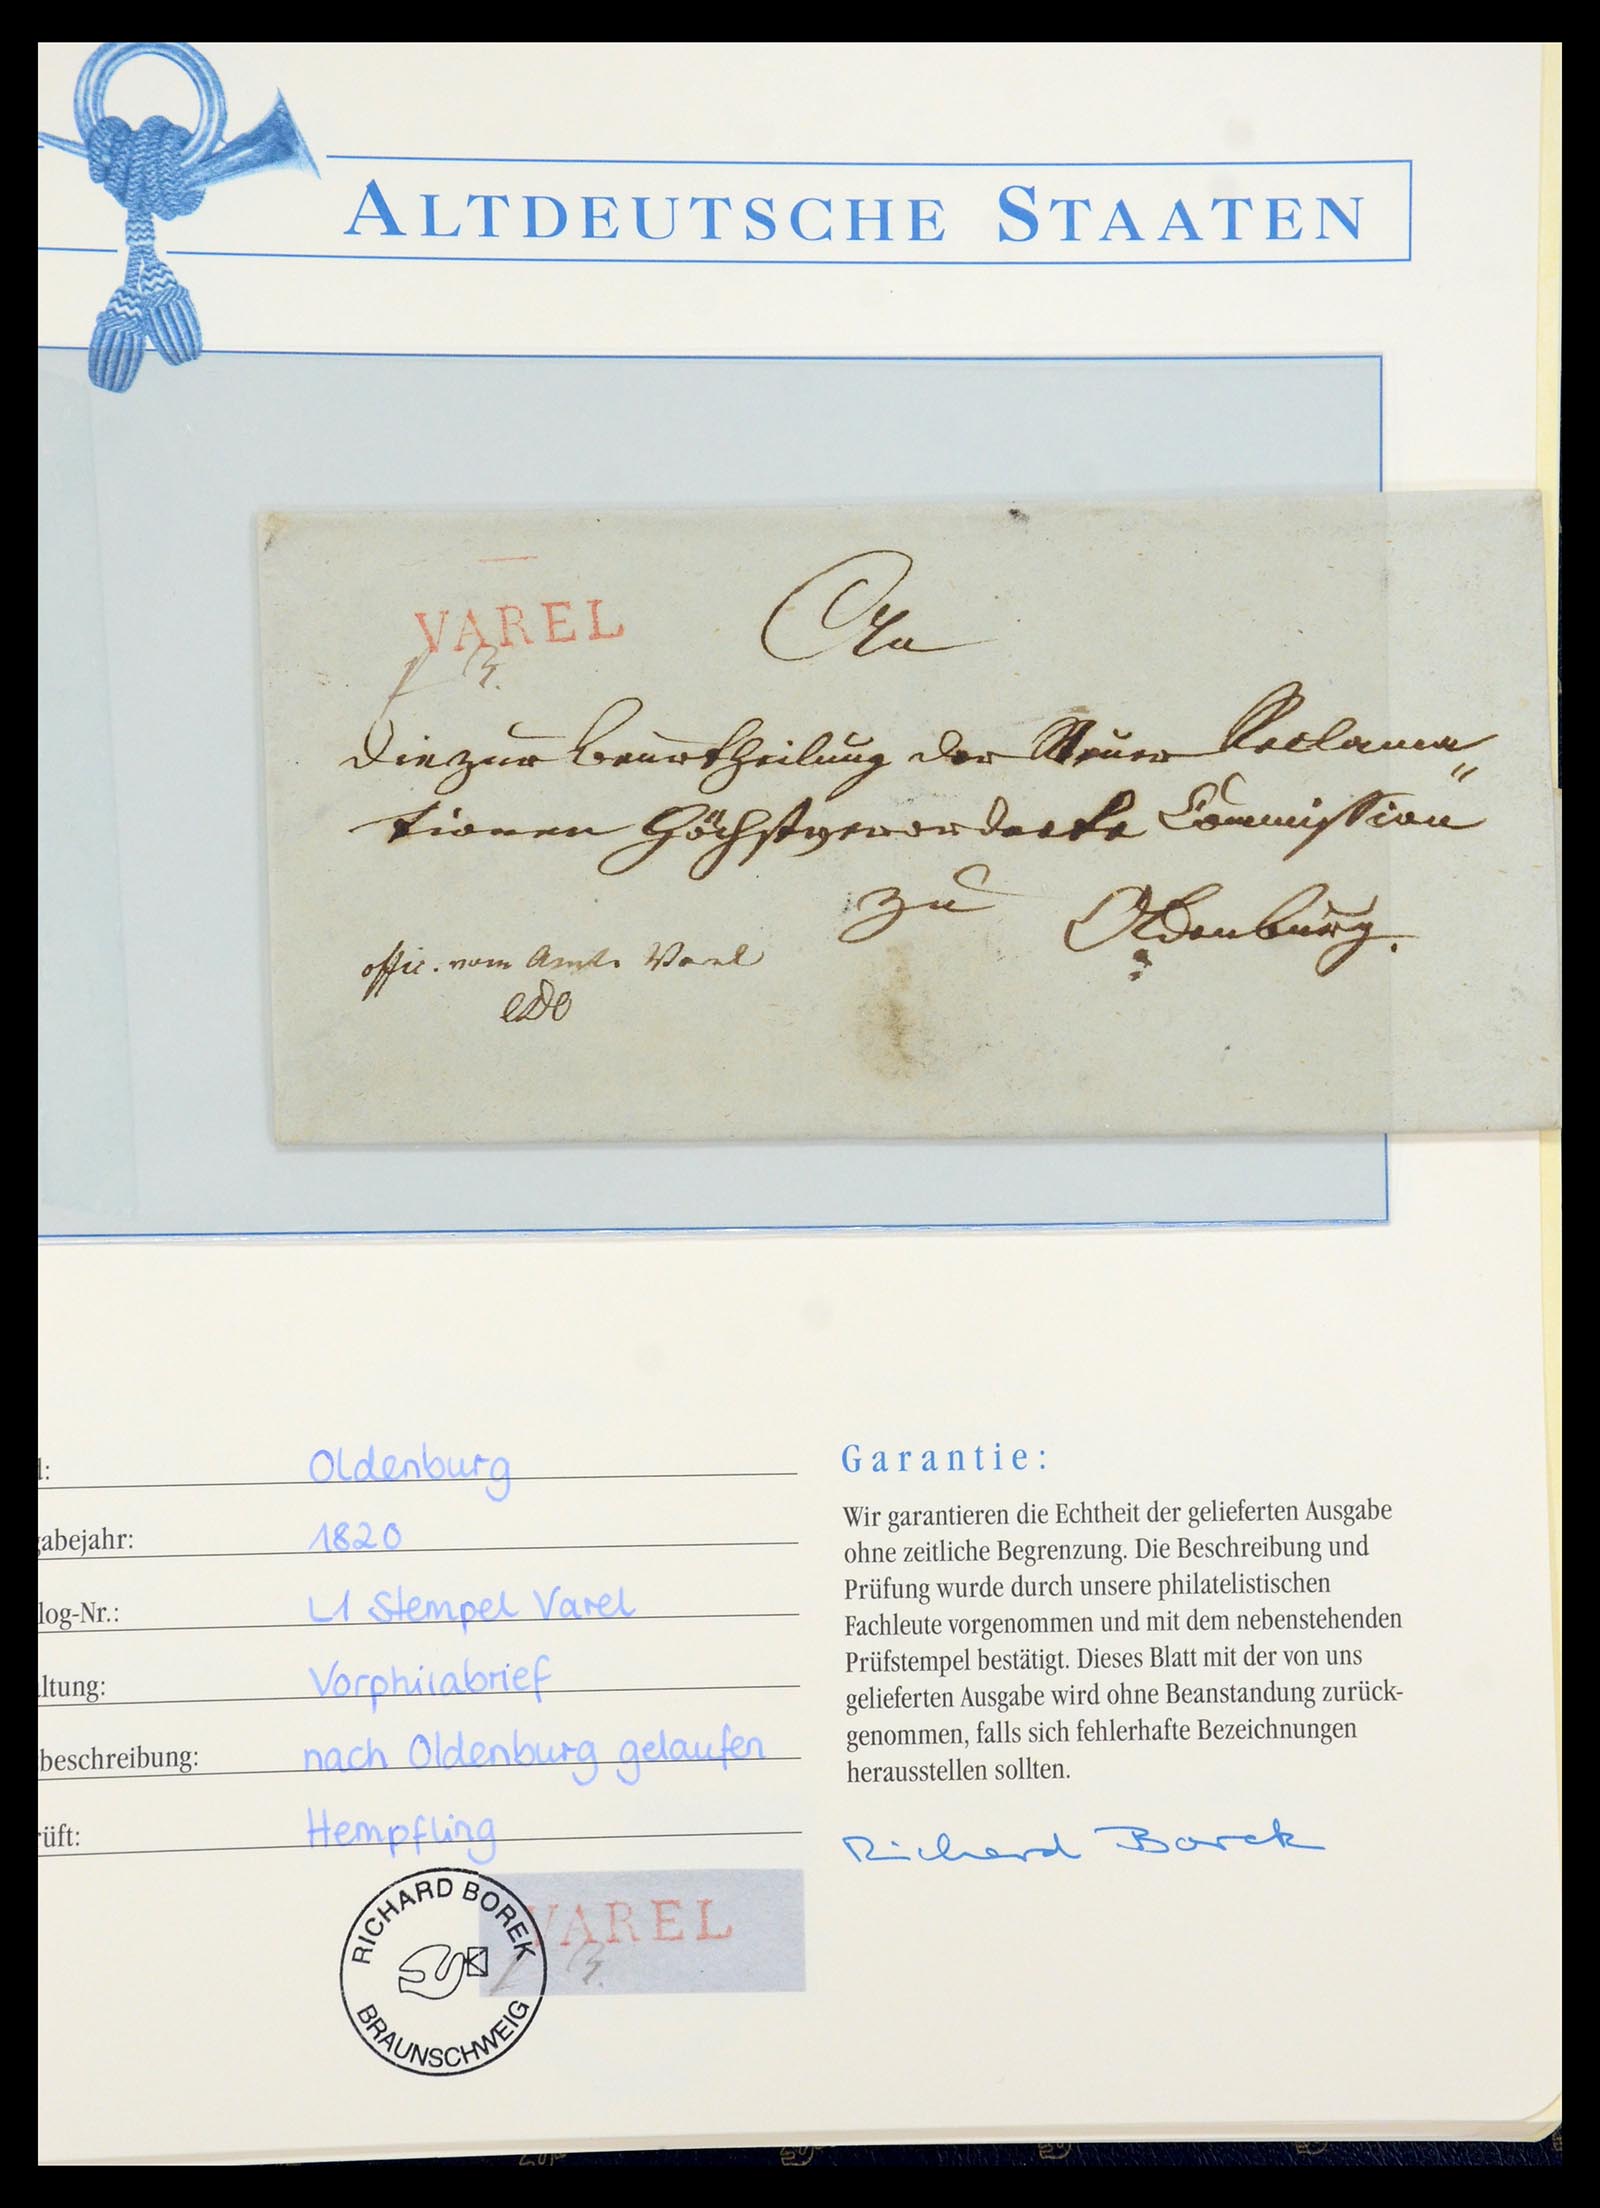 ALTDEUTSCHE STAATEN
VAREL
An
die zur Beurtheilung der Steuer Reclama„
tionen Höchstverordnete Commission
zu Oldenburg.
offic. vom Amte Varel
Oldenburg
gabejahr: 1820
log-Nr.: L1 Stempel Varel
ltung: Vorphilabrief
beschreibung: nach Oldenburg gelaufen
rüft: Hempfling
RICHARD BOREK
BRAUNSCHWEIG
VAREL
Garantie:
Wir garantieren die Echtheit der gelieferten Ausgabe
ohne zeitliche Begrenzung. Die Beschreibung und
Prüfung wurde durch unsere philatelistischen
Fachleute vorgenommen und mit dem nebenstehenden
Prüfstempel bestätigt. Dieses Blatt mit der von uns
gelieferten Ausgabe wird ohne Beanstandung zurück-
genommen, falls sich fehlerhafte Bezeichnungen
herausstellen sollten.
Richard Borek